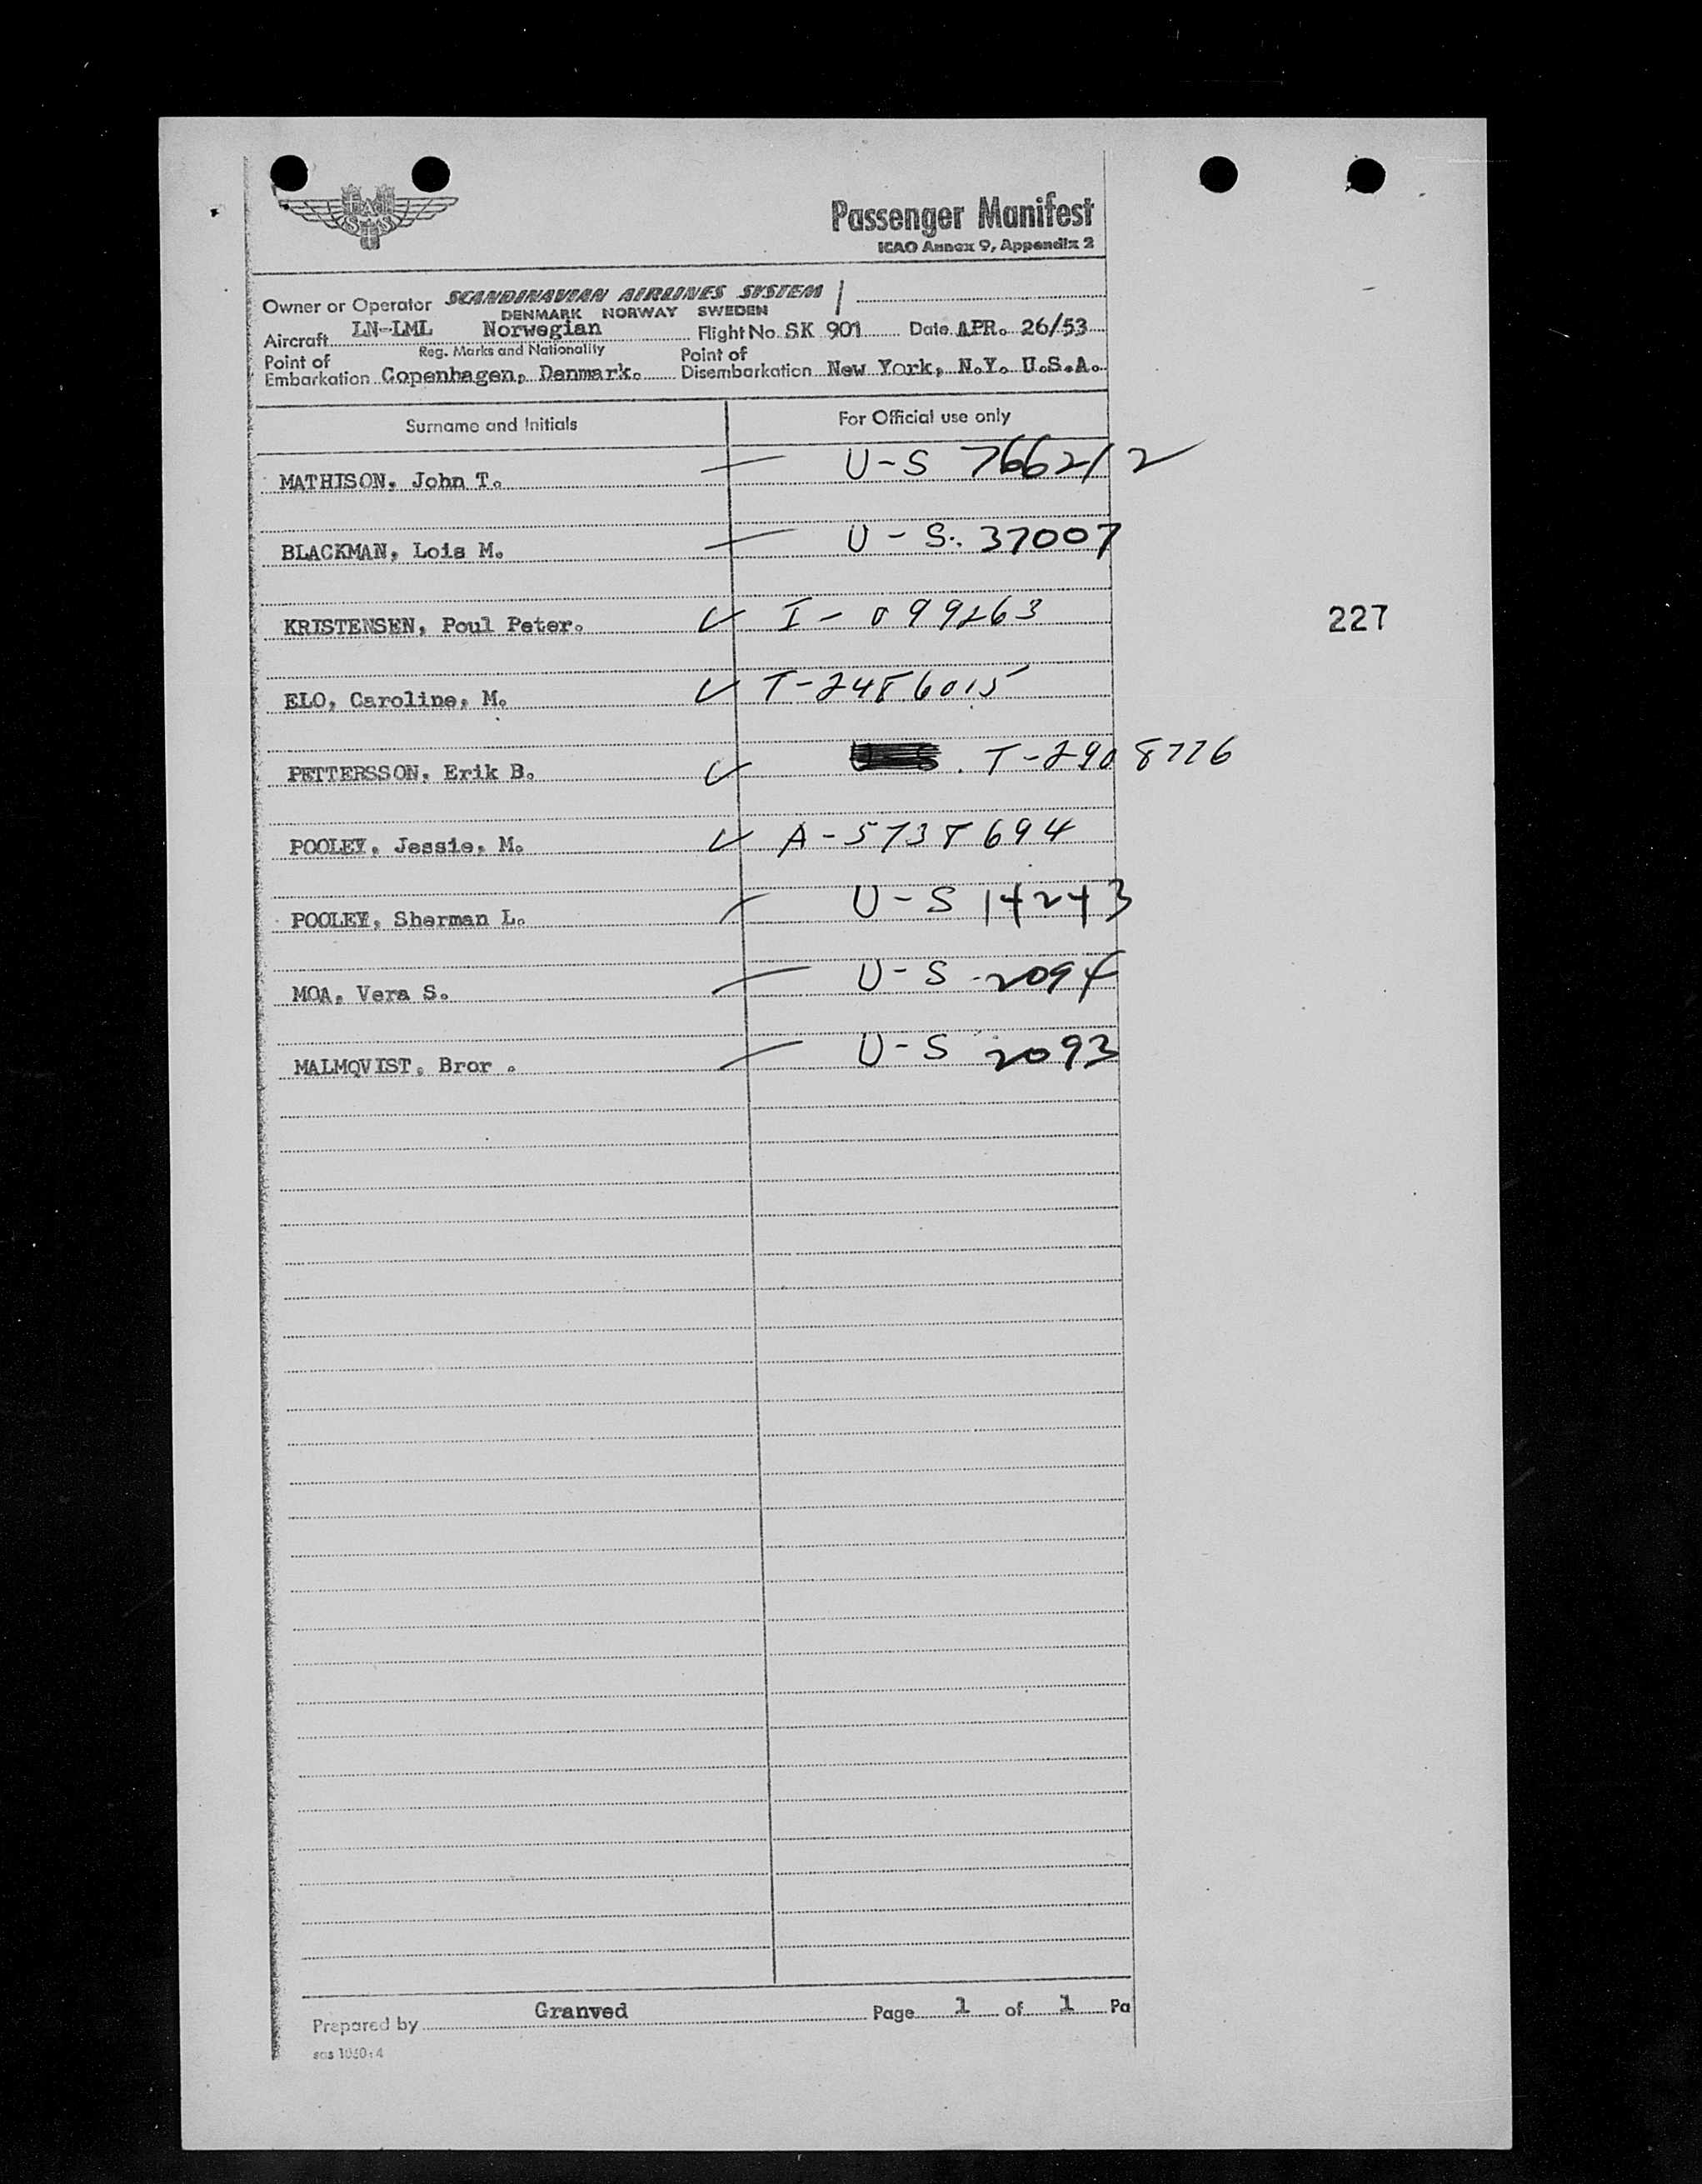 Passenger Manifest
ICAO Annex 9, Appendix 2
Owner or Operator SCANDINAVIAN AIRLINES SYSTEM
DENMARK NORWAY SWEDEN
Aircraft LN-LML Norwegian Flight No. SK 901 Date APR. 26/53
Reg. Marks and Nationality
Point of Embarkation Copenhagen, Denmark. Point of Disembarkation New York, N.Y. U.S.A.
Surname and Initials For Official use only
MATHISON, John T. U-S 766212
BLACKMAN, Lois M. U-S. 37007
KRISTENSEN, Poul Peter. I-099263
227
ELO, Caroline, M. T-2486015
PETTERSSON, Erik B. T-2908776
POOLEY, Jessie, M. A-5738694
POOLEY, Sherman L. U-S 14243
MOA, Vera S. U-S 2094
MALMQVIST, Bror . U-S 2093
Prepared by Granved Page 1 of 1 Pa
sas 1030:4